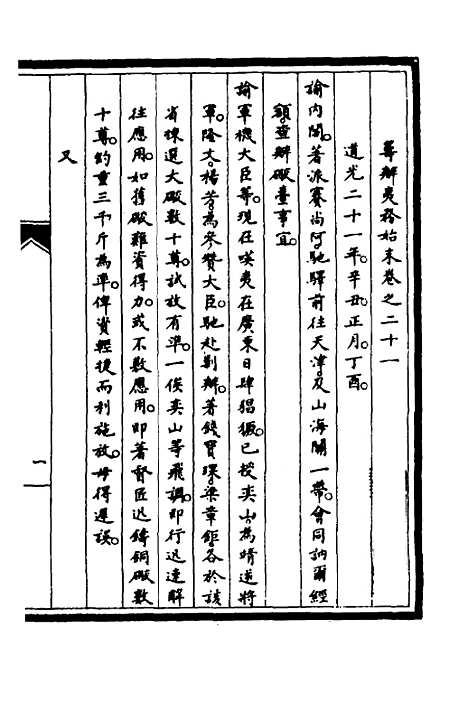 籌辦夷務始末卷之二十一
道光二十一年。辛丑。正月。丁酉。
諭內閣。著派賽尚阿馳驛前往天津。及山海關一帶。會同訥爾經
額。查辦礮臺事宜。
諭軍機大臣等。現在嘆夷在廣東日肆猖獗。已授奕山為靖逆將
軍。隆文。楊芳。為參贊大臣。馳赴勦辦。著錢寶琛。梁章鉅。各於該
省揀選大礮數十尊。試放有準。一俟奕山等飛調。即行迅速解
往應用。如舊礮難資得力。或不敷應用。即著督匠迅鑄銅礮數
十尊。約重三千斤為準。俾資輕捷而利施放。毋得遲誤。
又
一